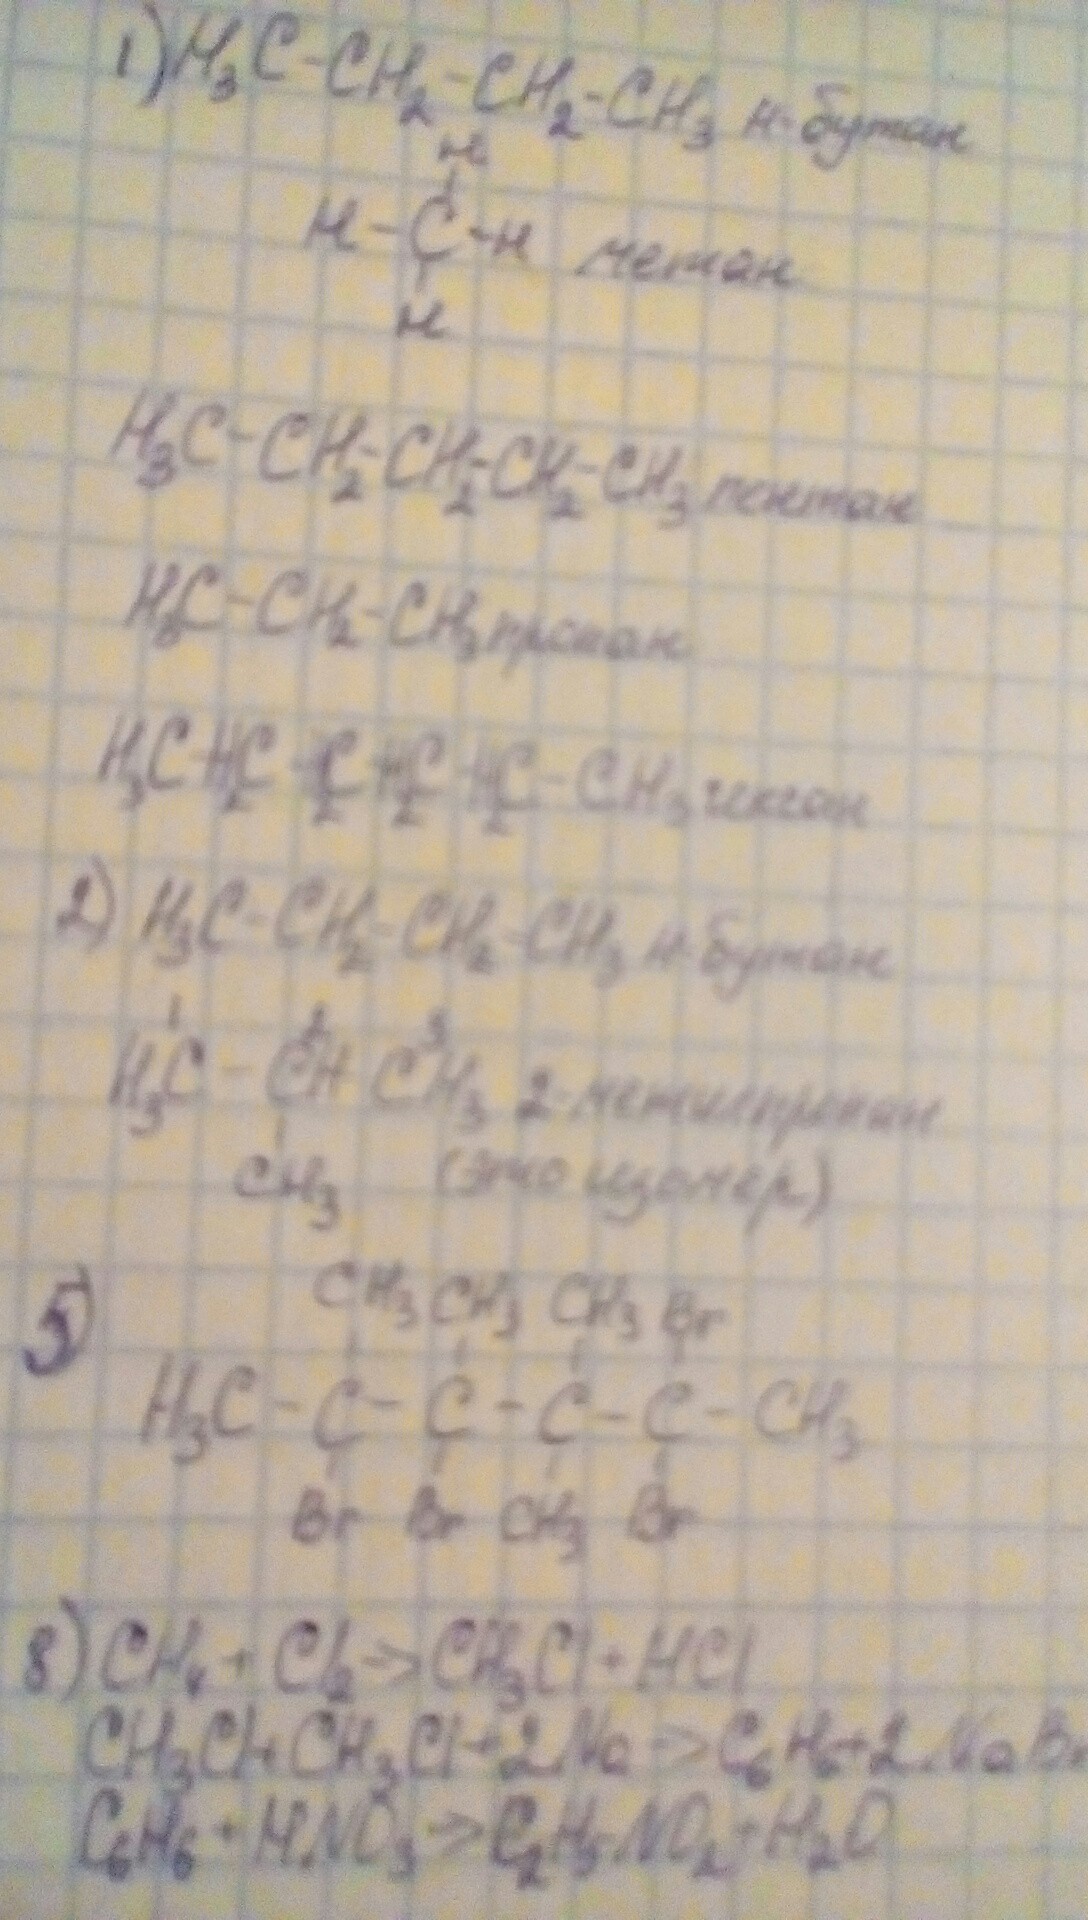 1) H₃C-CH₂-CH₂-CH₃ н-бутан
H
H-C-H метан
H
H₃C-CH₂-CH₂-CH₂-CH₃ пентан
H₃C-CH₂-CH₃ пропан
H₃C-H₂C-C₂-H₂C-H₂C-CH₃ гексан
2) H₃C-CH₂-CH₂-CH₃ н-бутан
1 2 3
H₃C-CH CH₃ 2-метилпропан
CH₃ (это изомер)
CH₃ CH₃ CH₃ Br
5) H₃C-C-C-C-C-CH₃
Br Br CH₃ Br
8) CH₄ + Cl₂ → CH₃Cl + HCl
CH₃Cl + CH₃Cl + 2Na → C₆H₆ + 2NaBr
C₆H₆ + HNO₃ → C₂H₅NO₂ + H₂O